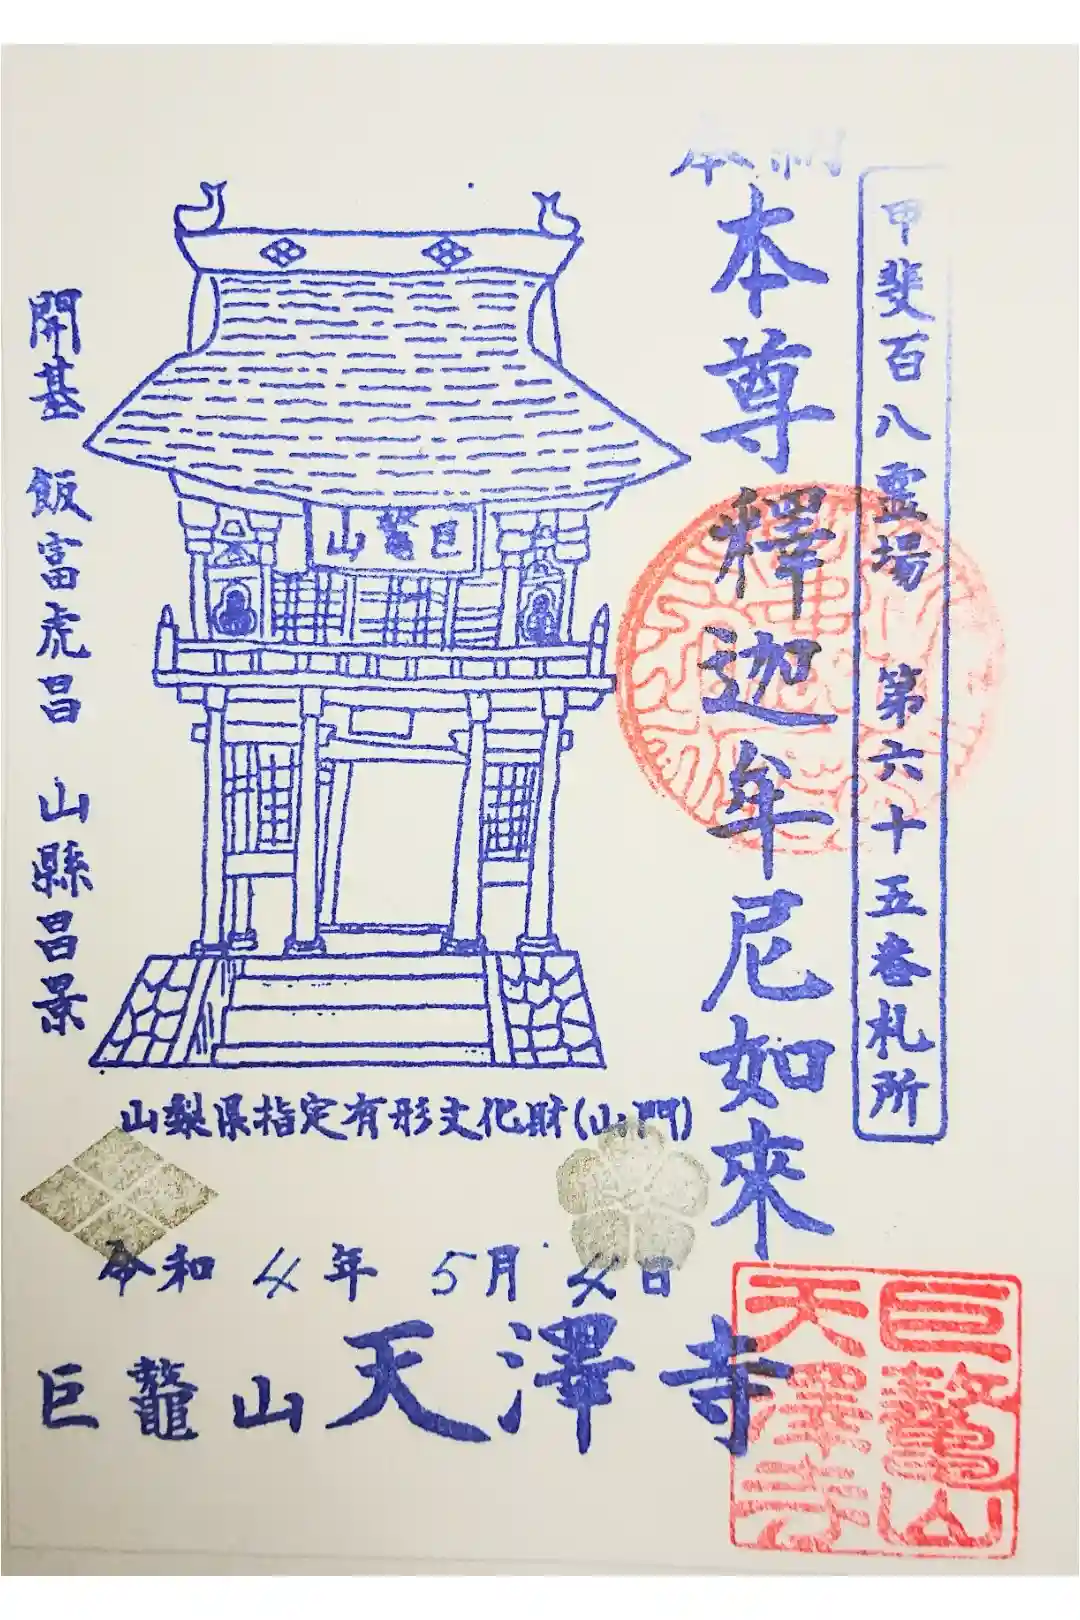 甲斐百八霊場 第六十五番札所
奉納
本尊釋迦牟尼如來
巨鼇山
開基 飯富虎昌 山縣昌景
山梨県指定有形文化財(山門)
令和 4年 5月 4日
巨鼇山天澤寺
巨鼇山
天澤寺